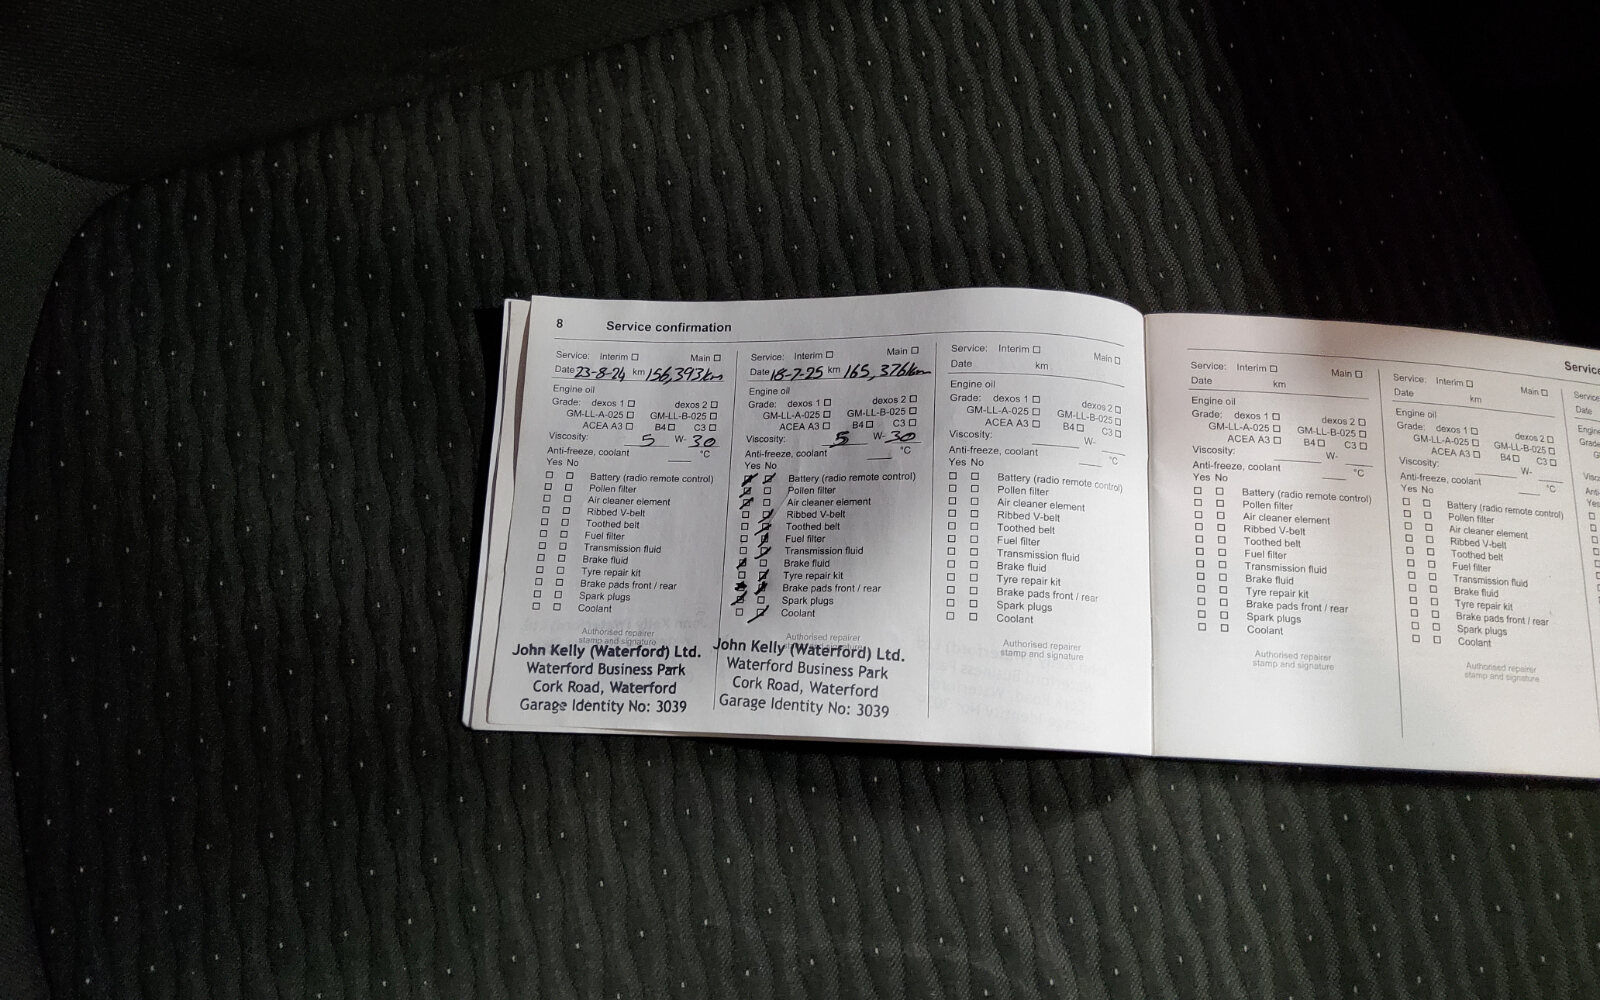 8 Service confirmation
Service: Interim ☐ Main ☐
Date 23-8-24 km 156,393km
Engine oil
Grade: dexos 1 ☐ dexos 2 ☐
GM-LL-A-025 ☐ GM-LL-B-025 ☐
ACEA A3 ☐ B4 ☐ C3 ☐
Viscosity: 5 W- 30
Anti-freeze, coolant ____ °C
Yes No
☐ ☐ Battery (radio remote control)
☐ ☐ Pollen filter
☐ ☐ Air cleaner element
☐ ☐ Ribbed V-belt
☐ ☐ Toothed belt
☐ ☐ Fuel filter
☐ ☐ Transmission fluid
☐ ☐ Brake fluid
☐ ☐ Tyre repair kit
☐ ☐ Brake pads front / rear
☐ ☐ Spark plugs
☐ ☐ Coolant
Authorised repairer
stamp and signature
John Kelly (Waterford) Ltd.
Waterford Business Park
Cork Road, Waterford
Garage Identity No: 3039
Service: Interim ☐ Main ☐
Date 18-7-25 km 165,376km
Engine oil
Grade: dexos 1 ☐ dexos 2 ☐
GM-LL-A-025 ☐ GM-LL-B-025 ☐
ACEA A3 ☐ B4 ☐ C3 ☐
Viscosity: 5 W- 30
Anti-freeze, coolant ____ °C
Yes No
Battery (radio remote control)
Pollen filter
Air cleaner element
Ribbed V-belt
Toothed belt
Fuel filter
Transmission fluid
Brake fluid
Tyre repair kit
Brake pads front / rear
Spark plugs
Coolant
Authorised repairer
John Kelly (Waterford) Ltd.
Waterford Business Park
Cork Road, Waterford
Garage Identity No: 3039
Service: Interim ☐ Main ☐
Date km
Engine oil
Grade: dexos 1 ☐ dexos 2 ☐
GM-LL-A-025 ☐ GM-LL-B-025 ☐
ACEA A3 ☐ B4 ☐ C3 ☐
Viscosity: ____ W- ____
Anti-freeze, coolant ____ °C
Yes No
☐ ☐ Battery (radio remote control)
☐ ☐ Pollen filter
☐ ☐ Air cleaner element
☐ ☐ Ribbed V-belt
☐ ☐ Toothed belt
☐ ☐ Fuel filter
☐ ☐ Transmission fluid
☐ ☐ Brake fluid
☐ ☐ Tyre repair kit
☐ ☐ Brake pads front / rear
☐ ☐ Spark plugs
☐ ☐ Coolant
Authorised repairer
stamp and signature
Service: Interim ☐ Main ☐
Date km
Engine oil
Grade: dexos 1 ☐ dexos 2 ☐
GM-LL-A-025 ☐ GM-LL-B-025 ☐
ACEA A3 ☐ B4 ☐ C3 ☐
Viscosity: ____ W- ____
Anti-freeze, coolant ____ °C
Yes No
☐ ☐ Battery (radio remote control)
☐ ☐ Pollen filter
☐ ☐ Air cleaner element
☐ ☐ Ribbed V-belt
☐ ☐ Toothed belt
☐ ☐ Fuel filter
☐ ☐ Transmission fluid
☐ ☐ Brake fluid
☐ ☐ Tyre repair kit
☐ ☐ Brake pads front / rear
☐ ☐ Spark plugs
☐ ☐ Coolant
Authorised repairer
stamp and signature
Service: Interim ☐ Main ☐
Date km
Engine oil
Grade: dexos 1 ☐ dexos 2 ☐
GM-LL-A-025 ☐ GM-LL-B-025 ☐
ACEA A3 ☐ B4 ☐ C3 ☐
Viscosity: ____ W- ____
Anti-freeze, coolant ____ °C
Yes No
☐ ☐ Battery (radio remote control)
☐ ☐ Pollen filter
☐ ☐ Air cleaner element
☐ ☐ Ribbed V-belt
☐ ☐ Toothed belt
☐ ☐ Fuel filter
☐ ☐ Transmission fluid
☐ ☐ Brake fluid
☐ ☐ Tyre repair kit
☐ ☐ Brake pads front / rear
☐ ☐ Spark plugs
☐ ☐ Coolant
Authorised repairer
stamp and signature
Service
Service:
Date